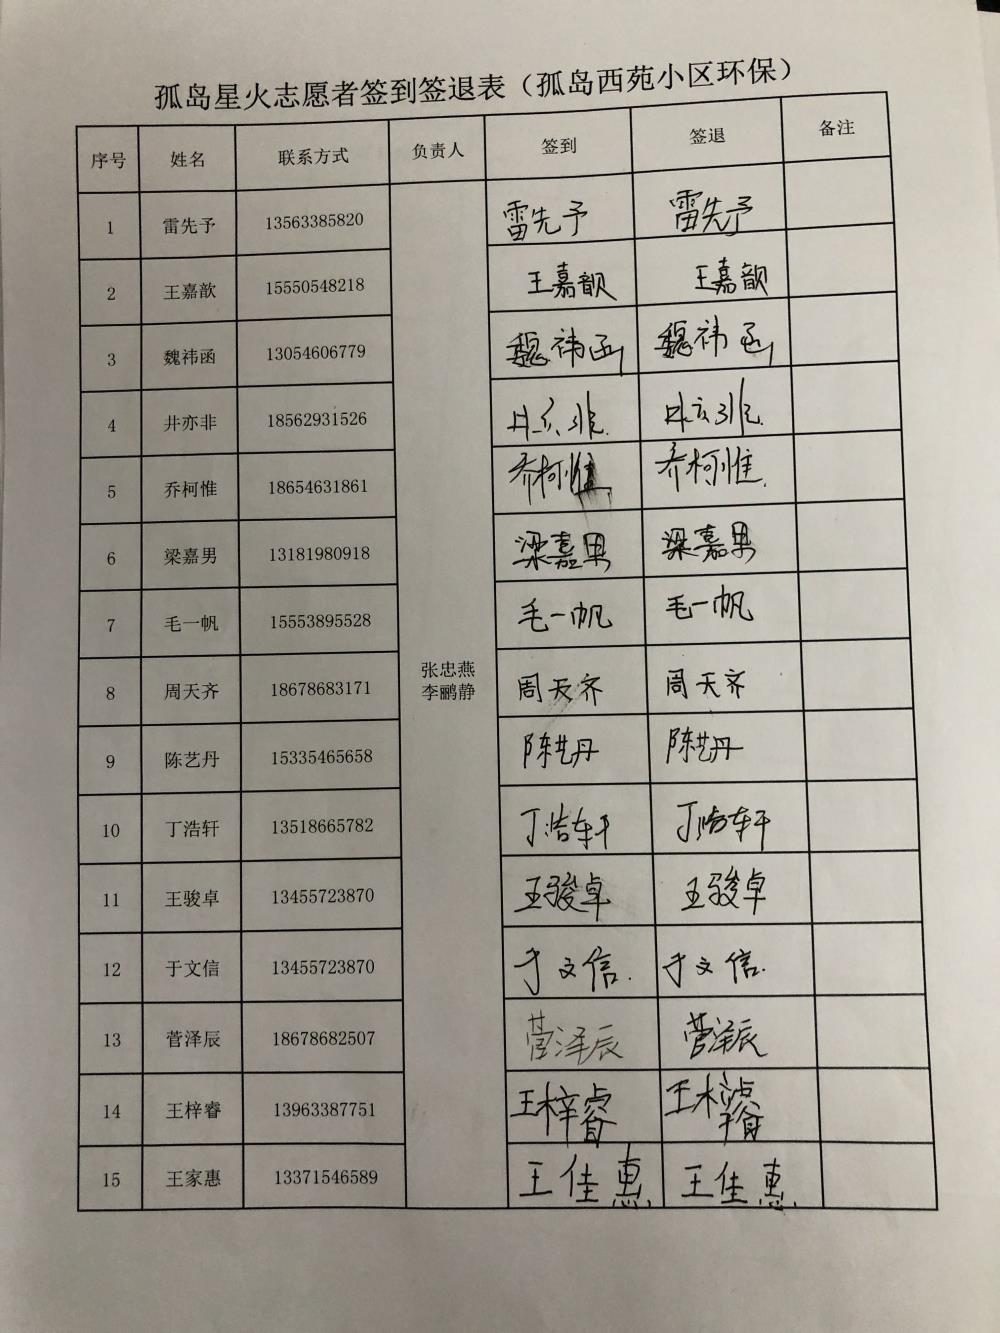 孤岛星火志愿者签到签退表（孤岛西苑小区环保）
序号 姓名 联系方式 负责人 签到 签退 备注
1 雷先予 13563385820 雷先予 雷先予
2 王嘉歆 15550548218 王嘉歆 王嘉歆
3 魏祎函 13054606779 魏祎函 魏祎函
4 井亦非 18562931526 井亦非 井亦非
5 乔柯惟 18654631861 乔柯惟 乔柯惟
6 梁嘉男 13181980918 梁嘉男 梁嘉男
7 毛一帆 15553895528 毛一帆 毛一帆
张忠燕
8 周天齐 18678683171 李鹂静 周天齐 周天齐
9 陈艺丹 15335465658 陈艺丹 陈艺丹
10 丁浩轩 13518665782 丁浩轩 丁浩轩
11 王骏卓 13455723870 王骏卓 王骏卓
12 于文信 13455723870 于文信. 于文信.
13 菅泽辰 18678682507 菅泽辰 菅泽辰
14 王梓睿 13963387751 王梓睿 王梓睿
15 王家惠 13371546589 王佳惠 王佳惠